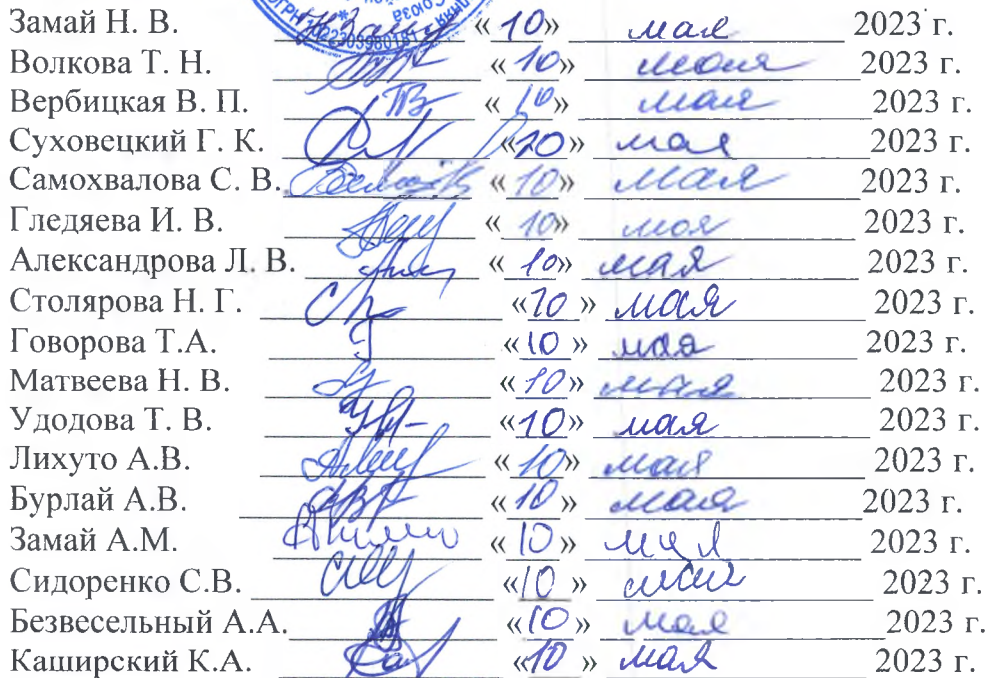 Союза
ОГРН 1022309980181
Замай Н. В. «10» мая 2023 г.
Волкова Т. Н. «10» мая 2023 г.
Вербицкая В. П. «10» мая 2023 г.
Суховецкий Г. К. «20» мая 2023 г.
Самохвалова С. В. «10» мая 2023 г.
Гледяева И. В. «10» мая 2023 г.
Александрова Л. В. «10» мая 2023 г.
Столярова Н. Г. «10» мая 2023 г.
Говорова Т.А. «10» мая 2023 г.
Матвеева Н. В. «10» мая 2023 г.
Удодова Т. В. «10» мая 2023 г.
Лихуто А.В. «10» мая 2023 г.
Бурлай А.В. «10» мая 2023 г.
Замай А.М. «10» мая 2023 г.
Сидоренко С.В. «10» мая 2023 г.
Безвесельный А.А. «10» мая 2023 г.
Каширский К.А. «10» мая 2023 г.